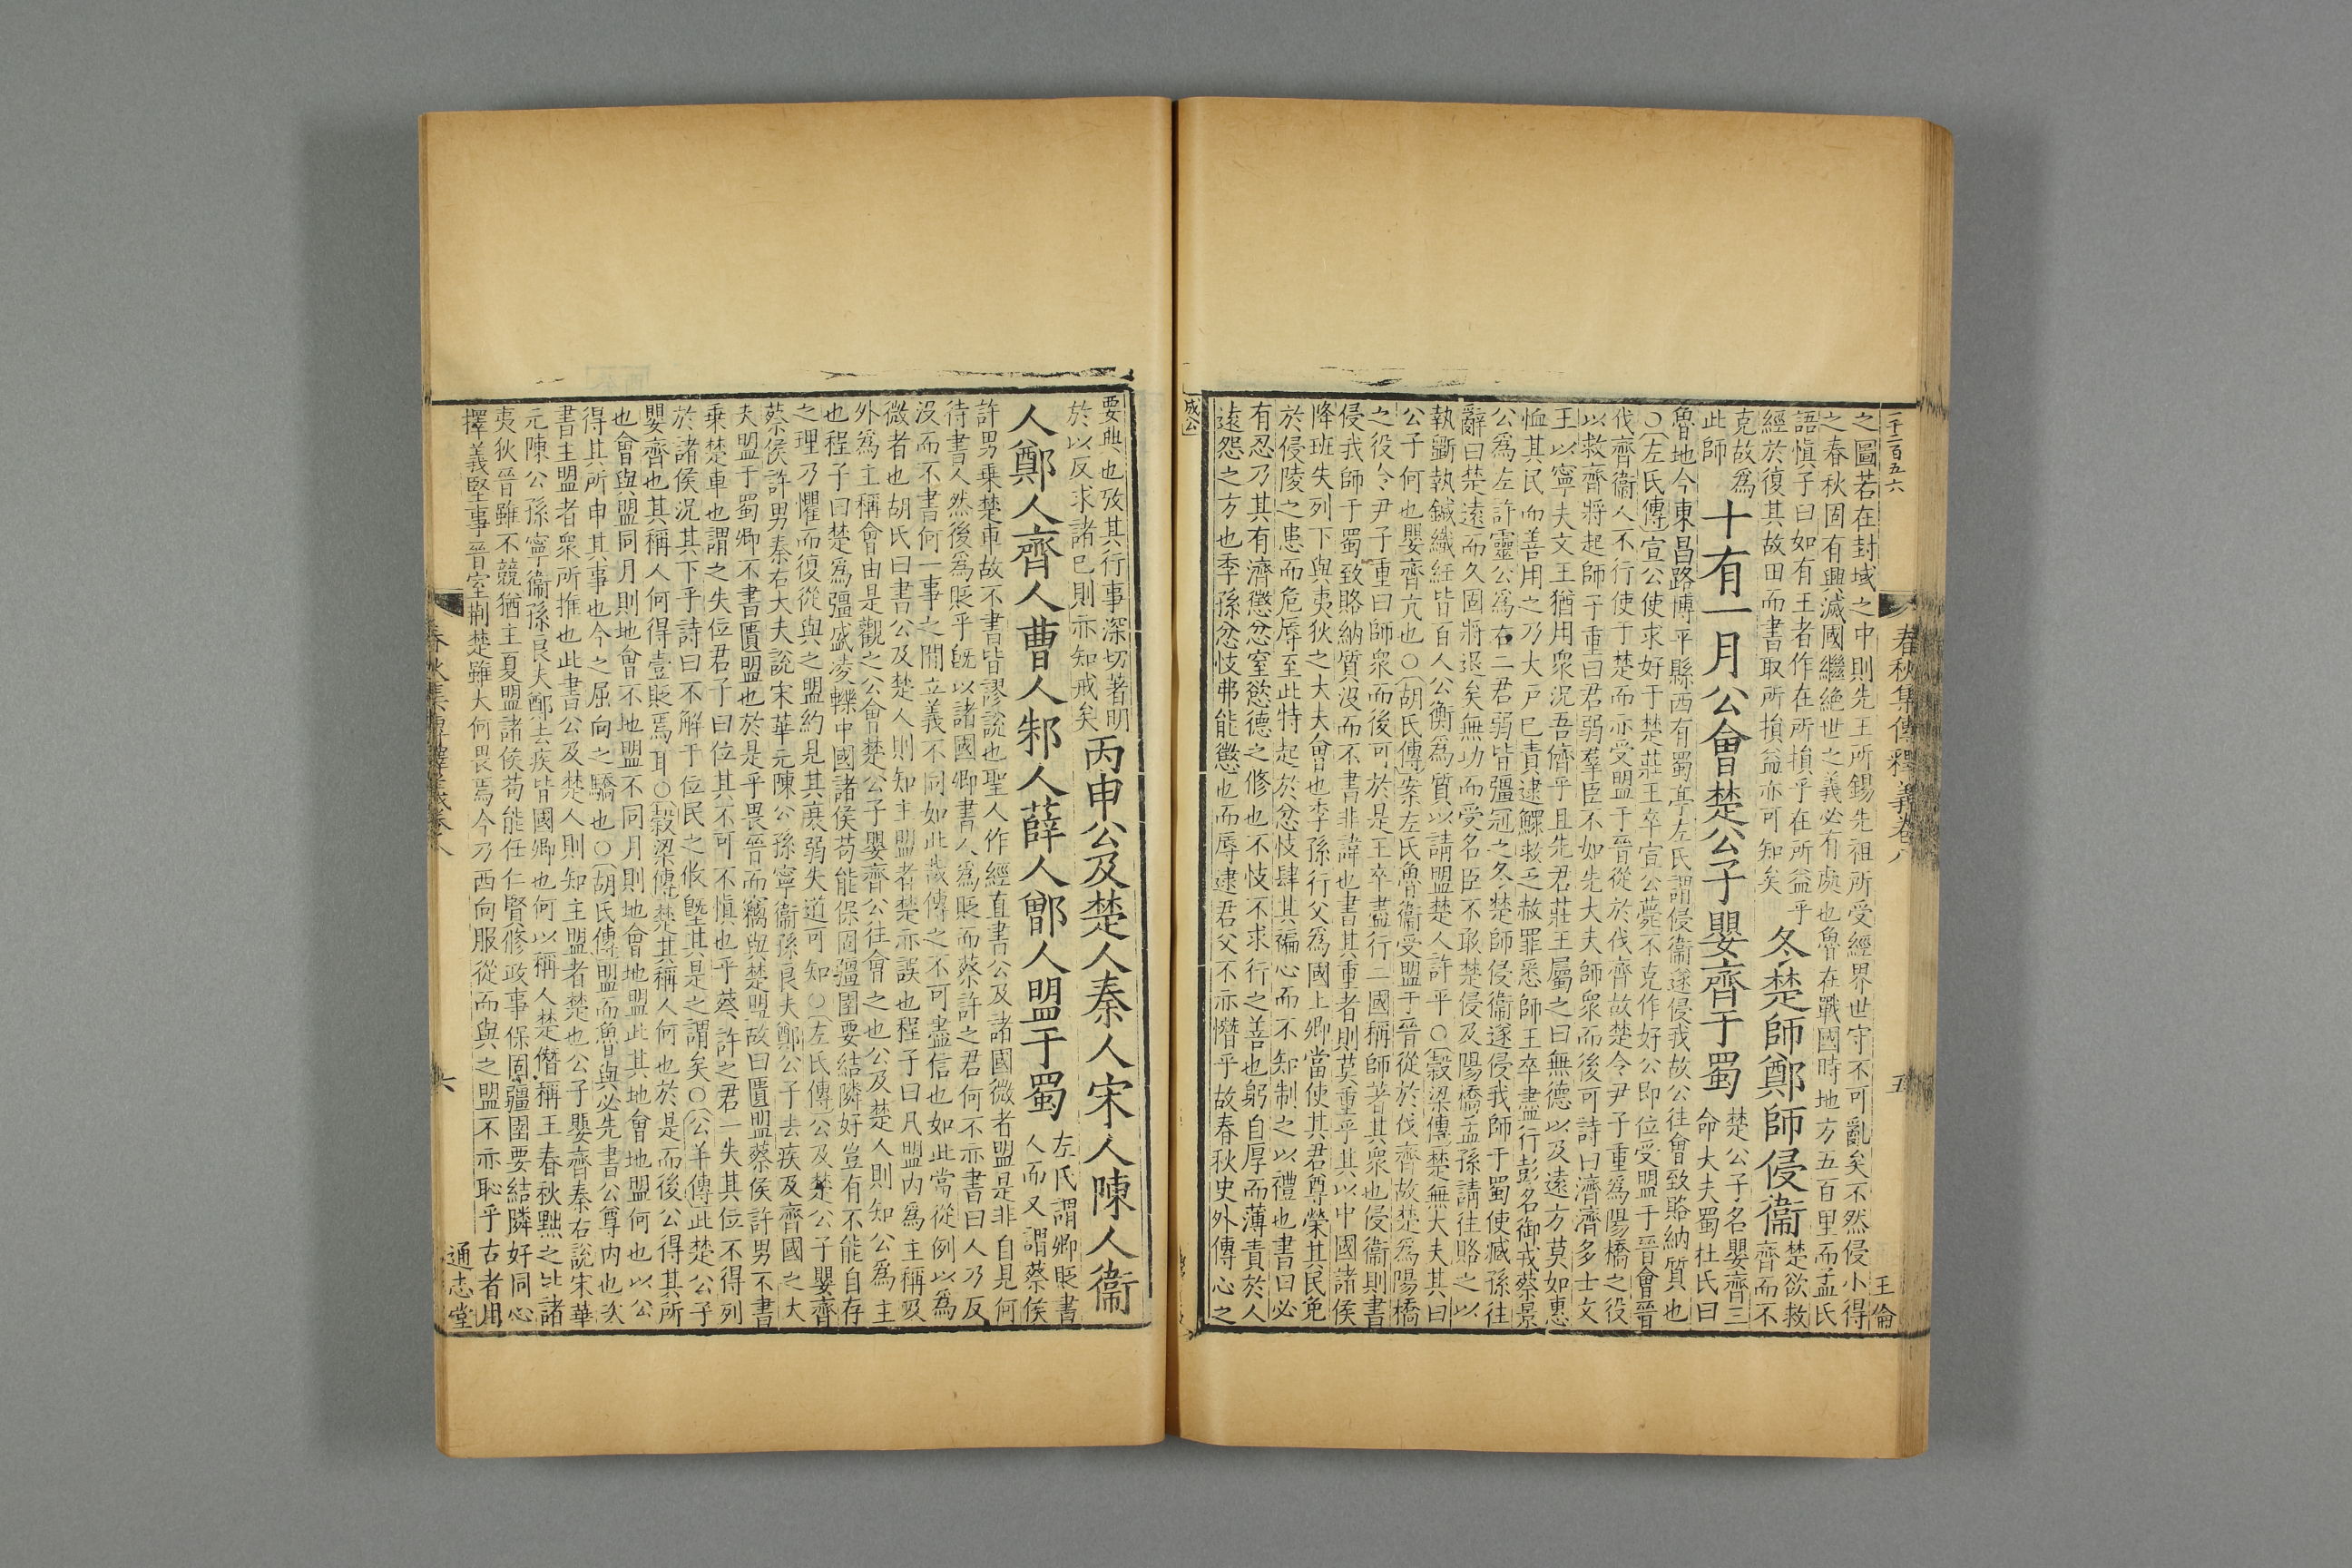 二千二百五六
春秋集傳釋義卷八
五
王倫
之圖若在封域之中則先王所錫先祖所受經界世守不可亂矣不然侵小得
之春秋固有興滅國繼絶世之義必有處也魯在戰國時地方五百里而孟氏
語愼子曰如有王者作在所損乎在所益乎
經於復其故田而書取所損益亦可知矣
冬楚師鄭師侵衞
楚欲救齊而不
克故爲此師
十有一月公會楚公子嬰齊于蜀
楚公子名嬰齊三
命大夫蜀杜氏曰
魯地今東昌路博平縣西有蜀亭左氏謂侵衞遂侵我故公往會致賂納質也
○左氏傳宣公使求好于楚莊王卒宣公薨不克作好公即位受盟于晉會晉
伐齊衞人不行使于楚而亦受盟于晉從於伐齊故楚令尹子重爲陽橋之役
以救齊將起師子重曰君弱羣臣不如先大夫師衆而後可詩曰濟濟多士文
王以寧夫文王猶用衆況吾儕乎且先君莊王屬之曰無德以及遠方莫如惠
恤其民而善用之乃大戸已責逮鰥救乏赦罪悉師王卒盡行彭名御戎蔡景
公爲左許靈公爲右二君弱皆彊冠之冬楚師侵衞遂侵我師于蜀使臧孫往
辭曰楚遠而久固將退矣無功而受名臣不敢楚侵及陽橋孟孫請往賂之以
執斲執鍼織紝皆百人公衡爲質以請盟楚人許平○穀梁傳楚無大夫其曰
公子何也嬰齊亢也○胡氏傳案左氏魯衞受盟于晉從於伐齊故楚爲陽橋
之役令尹子重曰師衆而後可於是王卒盡行二國稱師著其衆也侵衞則書
侵我師于蜀致賂納質沒而不書非諱也書其重者則莫重乎其以中國諸侯
降班失列下與夷狄之大夫會也季孫行父爲國上卿當使其君尊榮其民免
於侵陵之患而危辱至此特起於忿忮肆其褊心而不知制之以禮也書曰必
有忍乃其有濟懲忿窒慾德之修也不忮不求行之善也躬自厚而薄責於人
遠怨之方也季孫忿忮弗能懲也而辱逮君父不亦憯乎故春秋史外傳心之
成公
要典也攷其行事深切著明
於以反求諸已則亦知戒矣
丙申公及楚人秦人宋人陳人衞
人鄭人齊人曹人邾人薛人鄫人盟于蜀
左氏謂卿貶書
人而又謂蔡侯
許男乗楚車故不書皆謬說也聖人作經直書公及諸國微者盟是非自見何
待書人然後爲貶乎旣以諸國卿書人爲貶而蔡許之君何不亦書曰人乃反
沒而不書何一事之間立義不同如此哉傳之不可盡信也如此當從例以爲
微者也胡氏曰書公及楚人則知主盟者楚亦誤也程子曰凡盟内爲主稱及
外爲主稱會由是觀之公會楚公子嬰齊公往會之也公及楚人則知公爲主
也程子曰楚爲彊盛凌轢中國諸侯苟能保固疆圉要結隣好豈有不能自存
之理乃懼而復從與之盟約見其衰弱失道可知○左氏傳公及楚公子嬰齊
蔡侯許男秦右大夫說宋華元陳公孫寧衞孫良夫鄭公子去疾及齊國之大
夫盟于蜀卿不書匱盟也於是乎畏晉而竊與楚盟故曰匱盟蔡侯許男不書
乗楚車也謂之失位君子曰位其不可不愼也乎蔡許之君一失其位不得列
於諸侯況其下乎詩曰不解于位民之攸墍其是之謂矣○公羊傳此楚公子
嬰齊也其稱人何得壹貶焉耳○穀梁傳楚其稱人何也於是而後公得其所
也會與盟同月則地會不地盟不同月則地會地盟此其地會地盟何也以公
得其所申其事也今之屈向之驕也○胡氏傳盟而魯與必先書公尊内也次
書主盟者衆所推也此書公及楚人則知主盟者楚也公子嬰齊秦右說宋華
元陳公孫寧衞孫良夫鄭去疾皆國卿也何以稱人楚僭稱王春秋黜之比諸
夷狄晉雖不競猶主夏盟諸侯苟能任仁賢修政事保固疆圉要結隣好同心
擇義堅事晉室荆楚雖大何畏焉今乃西向服從而與之盟不亦恥乎古者用
春秋集傳釋義卷八
六
通志堂